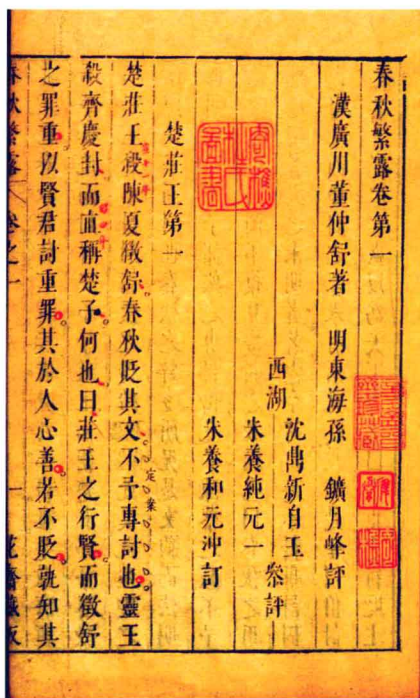 春秋繁露卷第一
漢廣川董仲舒著 明東海孫 鑛月峰評
沈鼎新自玉
西湖 朱養純元一 參評
朱養和元沖訂
楚莊王第一
楚莊王殺陳夏徵舒春秋貶其文不予專討也靈王
殺齊慶封而直稱楚子何也曰莊王之行賢而徵舒
之罪重以賢君討重罪其於人心善若不貶孰知其
春秋繁露 卷之一 一 花齋藏板
定案